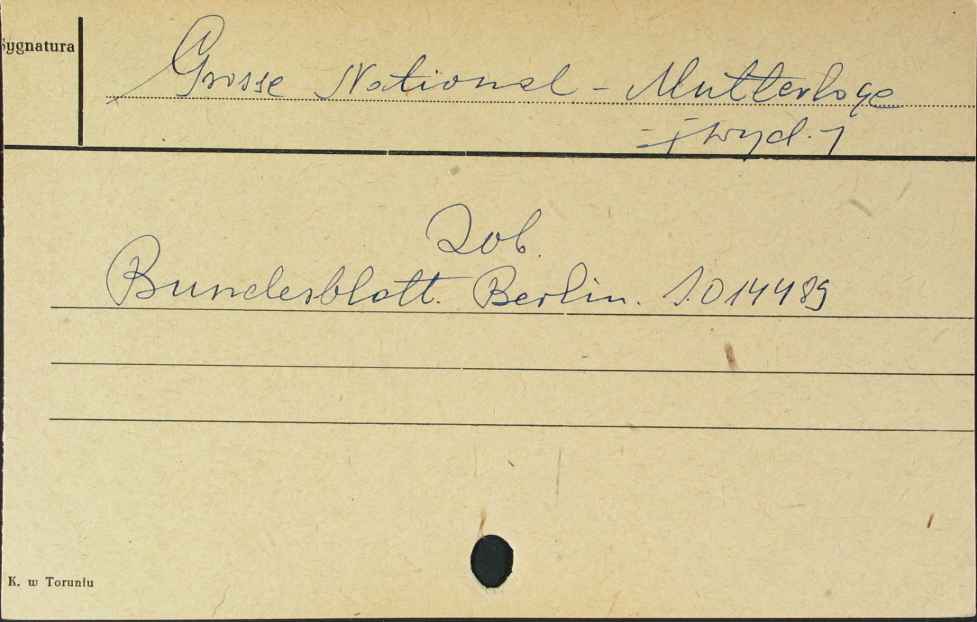 Sygnatura
Grosse National - Mutterloge
wyd.
Zob.
Bundesblatt. Berlin. 1.014489
K. w Toruniu